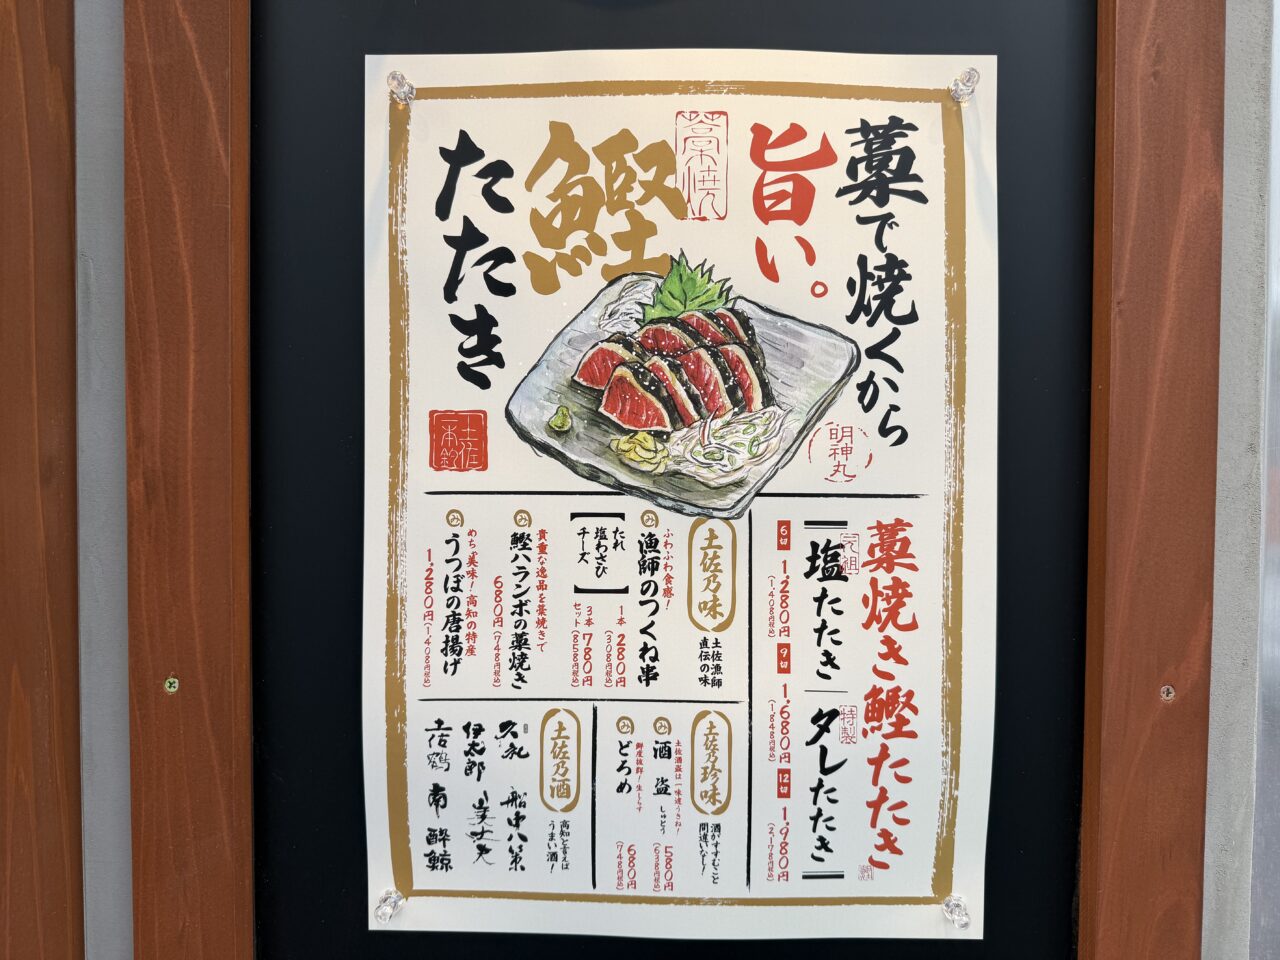 藁で焼くから
旨い。
藁焼
鰹
たたき
土佐
一本釣
明神丸
藁焼き鰹たたき
元祖
塩たたき
特製
タレたたき
6切
1,280円
(1,408円税込)
9切
1,680円
(1,848円税込)
12切
1,980円
(2,178円税込)
土佐乃味
土佐漁師
直伝の味
ふわふわ食感!
み 漁師のつくね串
【たれ
塩わさび
チーズ】
1本 280円
(308円税込)
3本
セット 780円
(858円税込)
貴重な逸品を藁焼きで
み 鰹ハランボの藁焼き
680円(748円税込)
めちゃ美味!高知の特産
み うつぼの唐揚げ
1,280円(1,408円税込)
土佐乃珍味
酒がすすむこと
間違いなし!
土佐酒盗は一味違うきね!
み 酒盗 しゅとう
580円
(638円税込)
鮮度抜群!生しらす
み どろめ
680円
(748円税込)
土佐乃酒
高知と言えば
うまい酒!
久礼
船中八策
伊太郎
美丈夫
土佐鶴
南
酔鯨